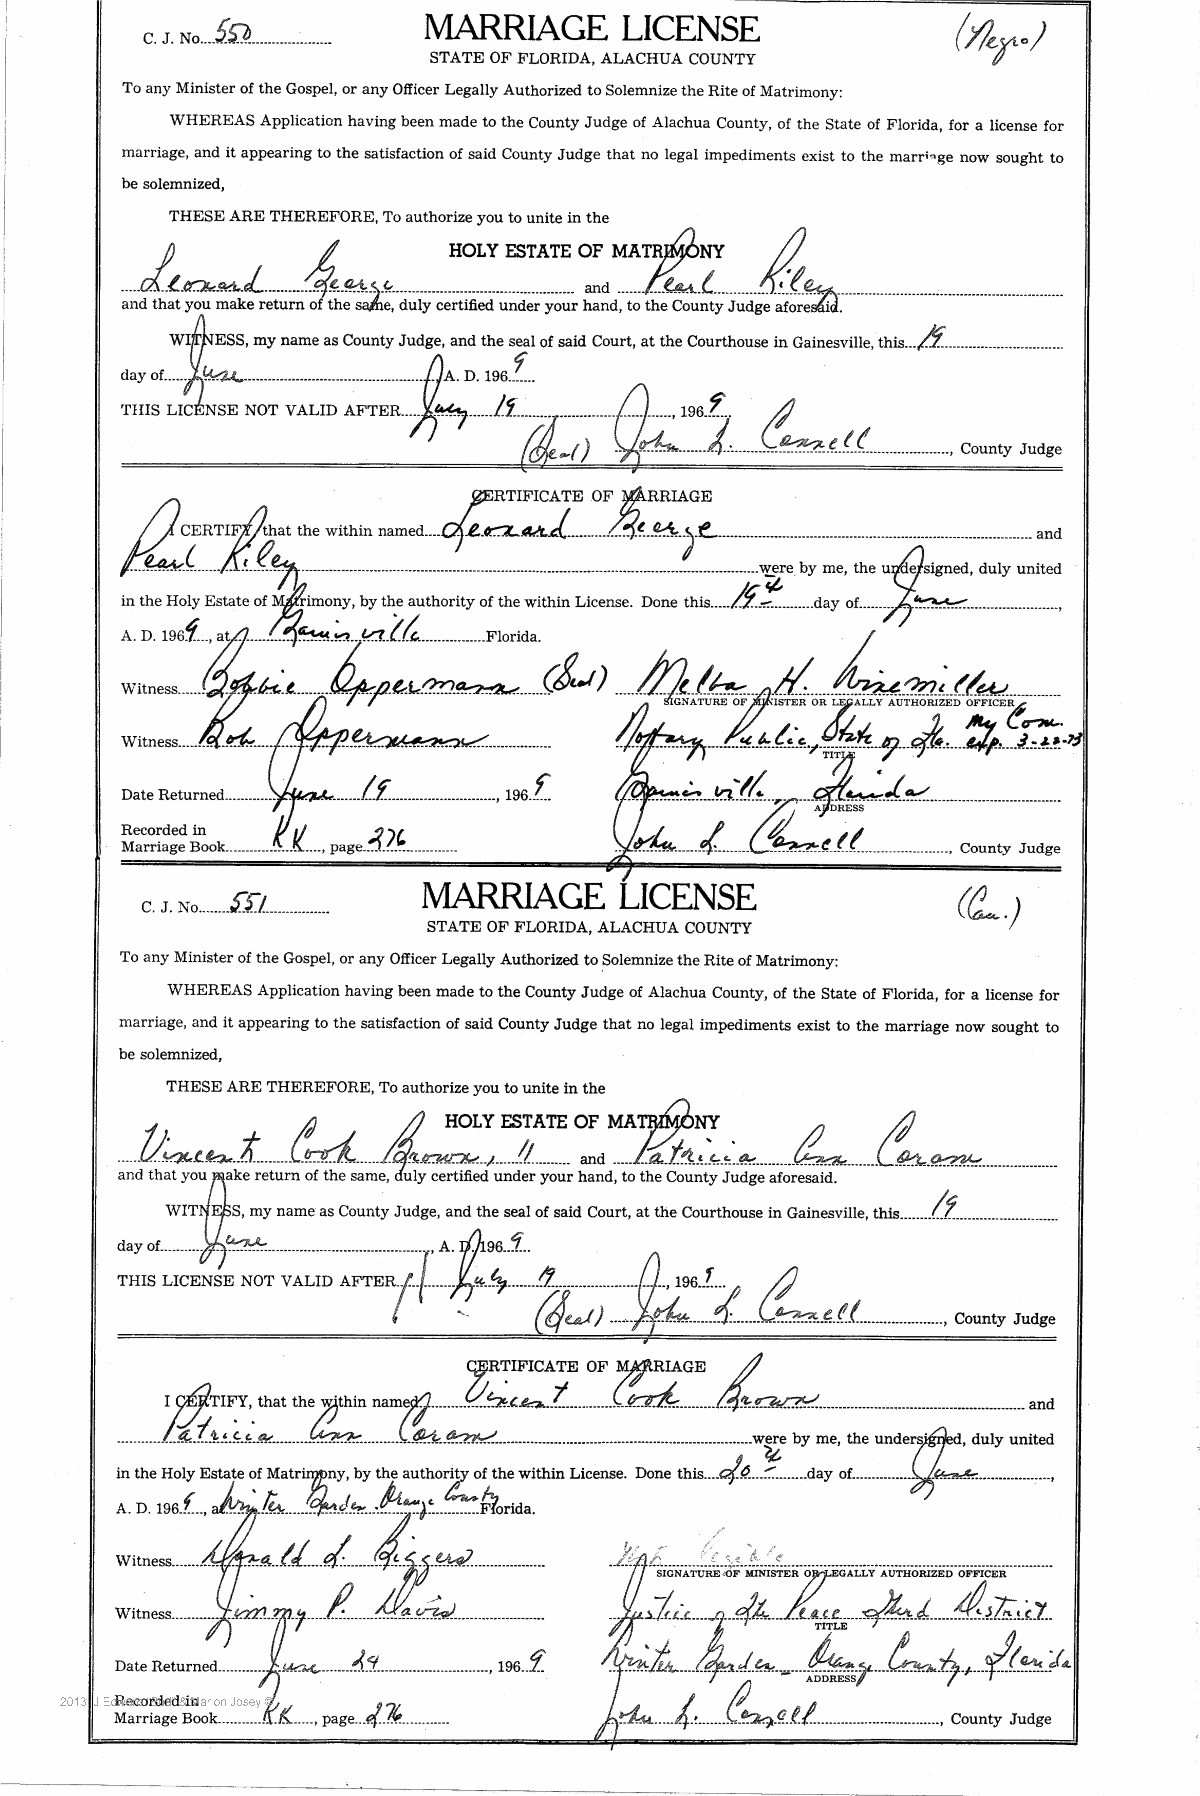 C. J. No. 550
MARRIAGE LICENSE
(Negro)
STATE OF FLORIDA, ALACHUA COUNTY
To any Minister of the Gospel, or any Officer Legally Authorized to Solemnize the Rite of Matrimony:
WHEREAS Application having been made to the County Judge of Alachua County, of the State of Florida, for a license for
marriage, and it appearing to the satisfaction of said County Judge that no legal impediments exist to the marriage now sought to
be solemnized,
THESE ARE THEREFORE, To authorize you to unite in the
HOLY ESTATE OF MATRIMONY
Leonard George and Pearl Riley
and that you make return of the same, duly certified under your hand, to the County Judge aforesaid.
WITNESS, my name as County Judge, and the seal of said Court, at the Courthouse in Gainesville, this 19
day of June, A. D. 1969.
THIS LICENSE NOT VALID AFTER July 19, 1969.
(Seal) John L. Connell, County Judge
CERTIFICATE OF MARRIAGE
I CERTIFY, that the within named Leonard George and
Pearl Riley were by me, the undersigned, duly united
in the Holy Estate of Matrimony, by the authority of the within License. Done this 19th day of June,
A. D. 1969, at Gainisville Florida.
Witness Bobbie Oppermann (Seal) Melba H. Winemiller
SIGNATURE OF MINISTER OR LEGALLY AUTHORIZED OFFICER
Witness Bob Oppermann Notary Public, State of Fla. My Com. exp. 3-22-73
TITLE
Date Returned June 19, 1969 Gainisville, Florida
ADDRESS
Recorded in
Marriage Book KK, page 276 John L. Connell, County Judge
C. J. No. 551
MARRIAGE LICENSE
(Cau.)
STATE OF FLORIDA, ALACHUA COUNTY
To any Minister of the Gospel, or any Officer Legally Authorized to Solemnize the Rite of Matrimony:
WHEREAS Application having been made to the County Judge of Alachua County, of the State of Florida, for a license for
marriage, and it appearing to the satisfaction of said County Judge that no legal impediments exist to the marriage now sought to
be solemnized,
THESE ARE THEREFORE, To authorize you to unite in the
HOLY ESTATE OF MATRIMONY
Vincent Cook Brown, II and Patricia Ann Coram
and that you make return of the same, duly certified under your hand, to the County Judge aforesaid.
WITNESS, my name as County Judge, and the seal of said Court, at the Courthouse in Gainesville, this 19
day of June, A. D. 1969.
THIS LICENSE NOT VALID AFTER July 19, 1969.
(Seal) John L. Connell, County Judge
CERTIFICATE OF MARRIAGE
I CERTIFY, that the within named Vincent Cook Brown and
Patricia Ann Coram were by me, the undersigned, duly united
in the Holy Estate of Matrimony, by the authority of the within License. Done this 20th day of June,
A. D. 1969, at Winter Garden Orange County Florida.
Witness Donald L. Biggers Not legible
SIGNATURE OF MINISTER OR LEGALLY AUTHORIZED OFFICER
Witness Jimmy P. Davis Justice of the Peace Third District
TITLE
Date Returned June 24, 1969 Winter Garden - Orange County, Florida
ADDRESS
Recorded in
Marriage Book KK, page 276 John L. Connell, County Judge
2013 J Josey ©